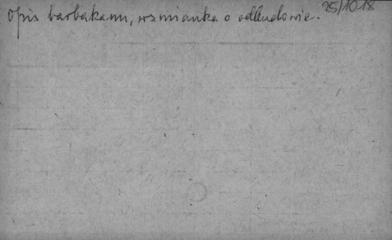 opis barbakanu, wzmianka o odbudowie. 25/1018